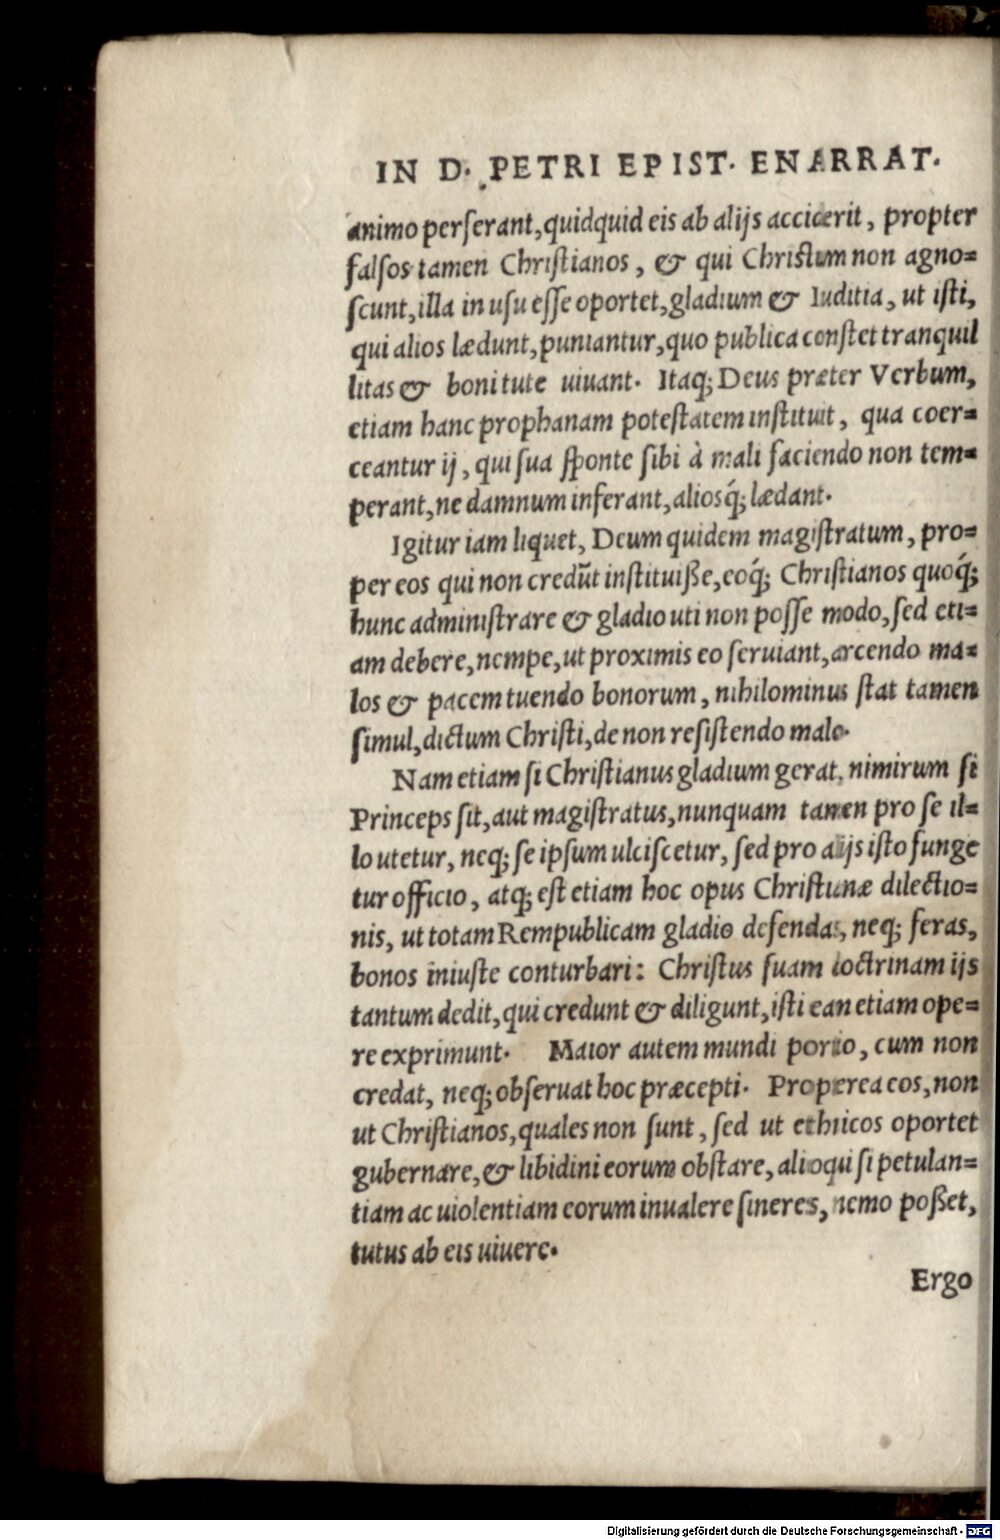 IN D. PETRI EPIST. ENARRAT.
animo perferant, quidquid eis ab alijs acciderit, propter
falsos tamen Christianos, & qui Christum non agno=
scunt, illa in usu esse oportet, gladium & Iuditia, ut isti,
qui alios lædunt, puniantur, quo publica constet tranquil
litas & bonitute uiuant. Itaq; Deus præter Verbum,
etiam hanc prophanam potestatem instituit, qua coer=
ceantur ij, qui sua sponte sibi à mali faciendo non tem=
perant, ne damnum inferant, aliosq́; lædant.
Igitur iam liquet, Deum quidem magistratum, pro=
per eos qui non credũt instituiße, eoq́; Christianos quoq́;
hunc administrare & gladio uti non posse modo, sed eti=
am debere, nempe, ut proximis eo seruiant, arcendo ma=
los & pacem tuendo bonorum, nihilominus stat tamen
simul, dictum Christi, de non resistendo malo.
Nam etiam si Christianus gladium gerat, nimirum si
Princeps sit, aut magistratus, nunquam tamen pro se il=
lo utetur, neq; se ipsum ulciscetur, sed pro alijs isto funge
tur officio, atq; est etiam hoc opus Christianæ dilectio=
nis, ut totam Rempublicam gladio defendas, neq; feras,
bonos iniuste conturbari: Christus suam doctrinam ijs
tantum dedit, qui credunt & diligunt, isti ean etiam ope=
re exprimunt. Maior autem mundi portio, cum non
credat, neq; obseruat hoc præcepti. Properea eos, non
ut Christianos, quales non sunt, sed ut ethnicos oportet
gubernare, & libidini eorum obstare, alioqui si petulan=
tiam ac uiolentiam eorum inualere sineres, nemo poßet,
tutus ab eis uiuere.
Ergo
Digitalisierung gefördert durch die Deutsche Forschungsgemeinschaft - DFG